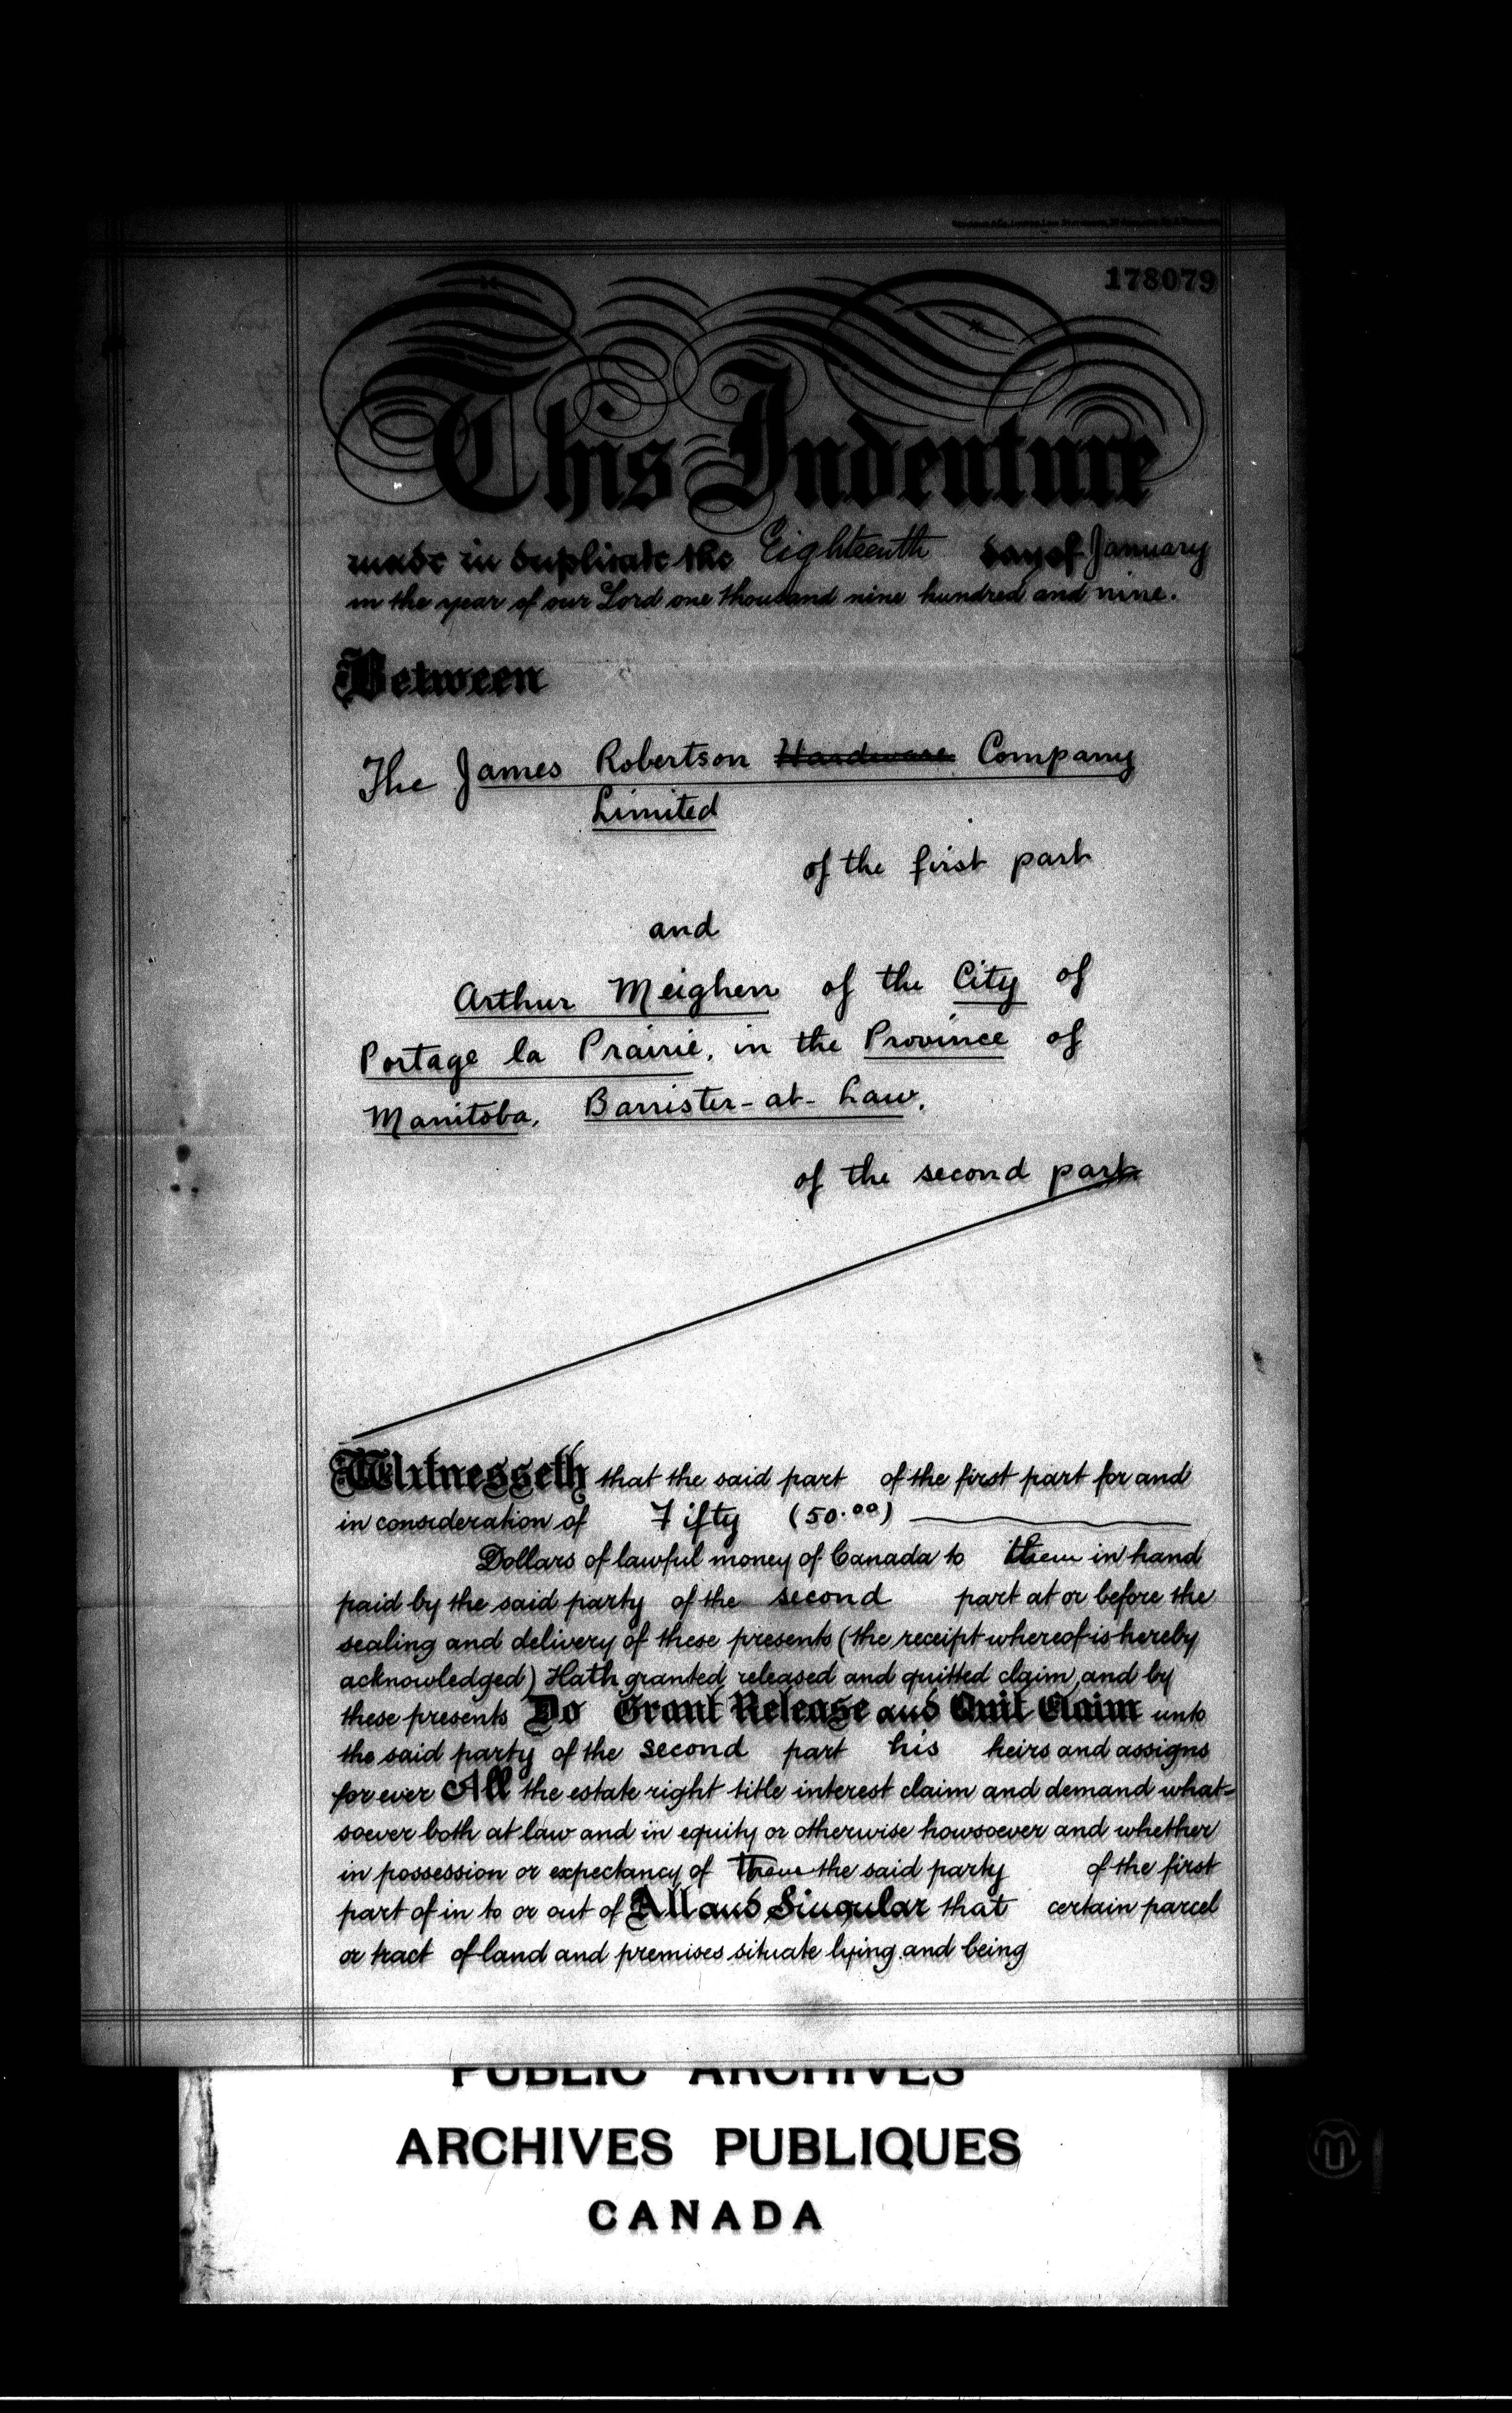 178079
This Indenture
made in duplicate the Eighteenth day of January
in the year of our Lord one thousand nine hundred and nine.
Between
The James Robertson Hardware Company
Limited
of the first part
and
Arthur Meighen of the City of
Portage la Prairie, in the Province of
Manitoba, Barrister-at-Law,
of the second part
Witnesseth that the said part of the first part for and
in consideration of Fifty (50.00)
Dollars of lawful money of Canada to them in hand
paid by the said party of the second part at or before the
sealing and delivery of these presents (the receipt whereof is hereby
acknowledged) Hath granted released and quitted claim, and by
these presents Do Grant Release and Quit Claim unto
the said party of the second part his heirs and assigns
for ever All the estate right title interest claim and demand what-
soever both at law and in equity or otherwise howsoever and whether
in possession or expectancy of them the said party of the first
part of in to or out of All and Singular that certain parcel
or tract of land and premises situate lying and being
PUBLIC ARCHIVES
ARCHIVES PUBLIQUES
CANADA